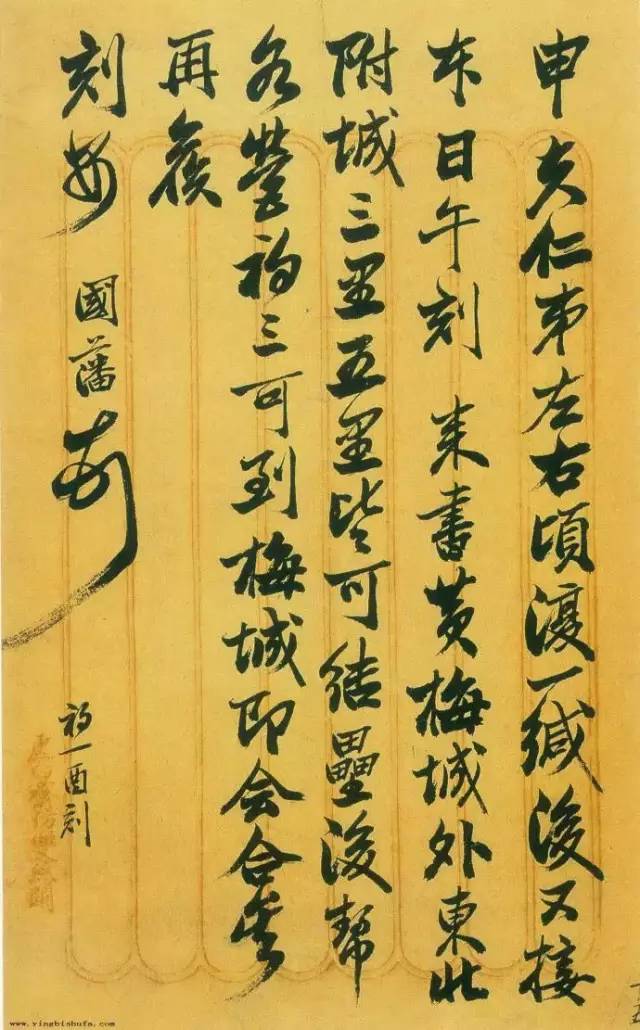 申夫仁弟左右頃復一緘後又接
本日午刻 来書黄梅城外東北
附城三里五里皆可结壘後幇
各營初三可到梅城即会合矣
再候
刻安 國藩 頓
初一酉刻
www.yingbishufa.com